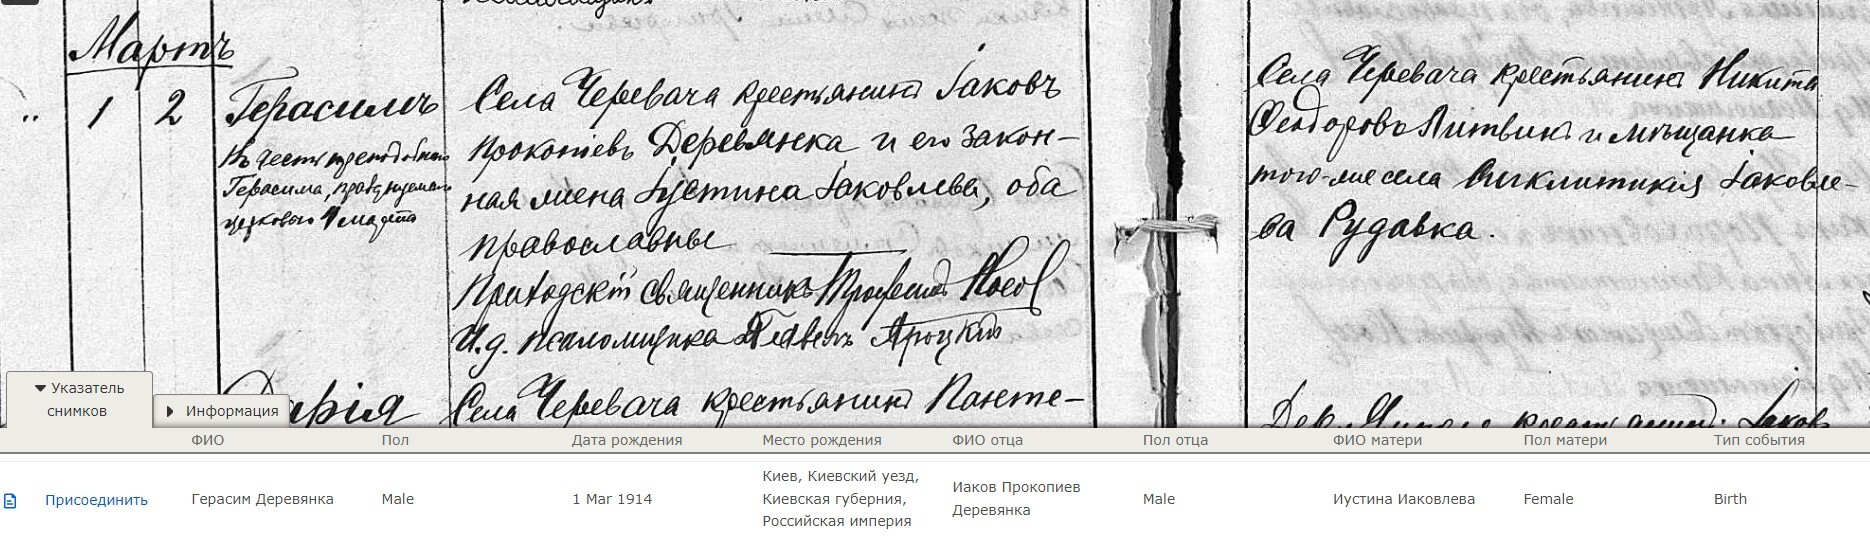 Мартъ
1 2 Герасимъ
Въ честь преподобнаго
Герасима, празднуемаго
церковью 4 марта
Села Черевача крестьянинъ Іаковъ
Прокопіевъ Деревянка и его закон-
ная жена Іустина Іаковлева, оба
православны
Приходскій священникъ
И. д. псаломщика
Села Черевача крестьянинъ Никита
Феодоровъ Литвинъ и мѣщанка
того-же села Синклитикія Іаковле-
ва Рудавка.
Дарія
Села Черевача крестьянинъ Панте-
Указатель
снимков
Информация
ФИО Пол Дата рождения Место рождения ФИО отца Пол отца ФИО матери Пол матери Тип события
Присоединить Герасим Деревянка Male 1 Mar 1914
Киев, Киевский уезд,
Киевская губерния,
Российская империя
Иаков Прокопиев
Деревянка
Male Иустина Иаковлева Female Birth